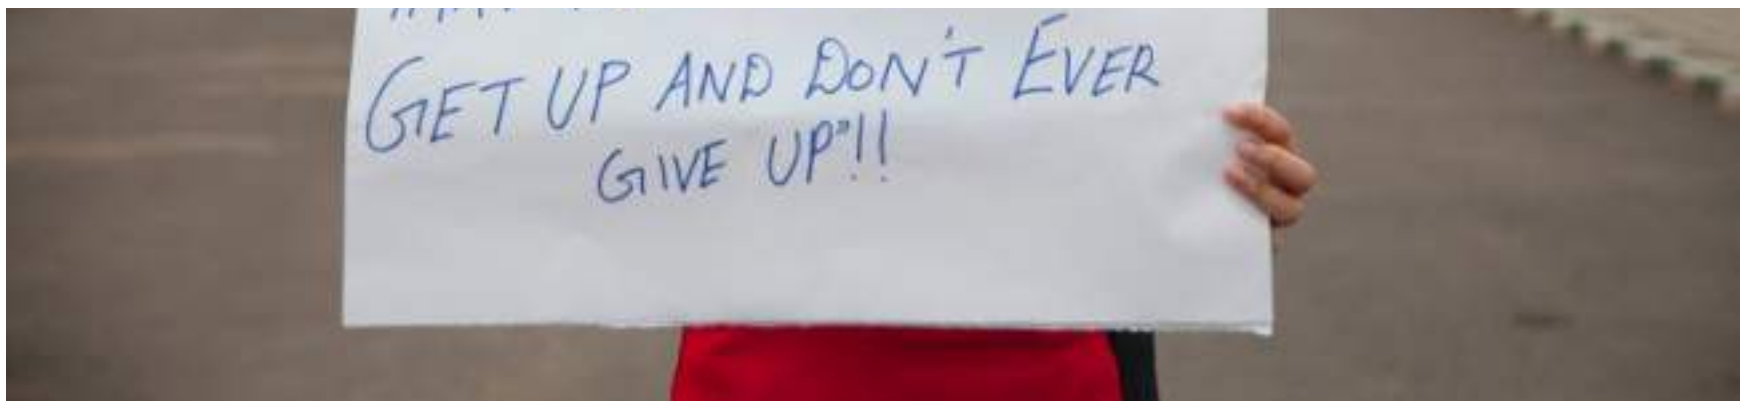 GET UP AND DON'T EVER
GIVE UP"!!